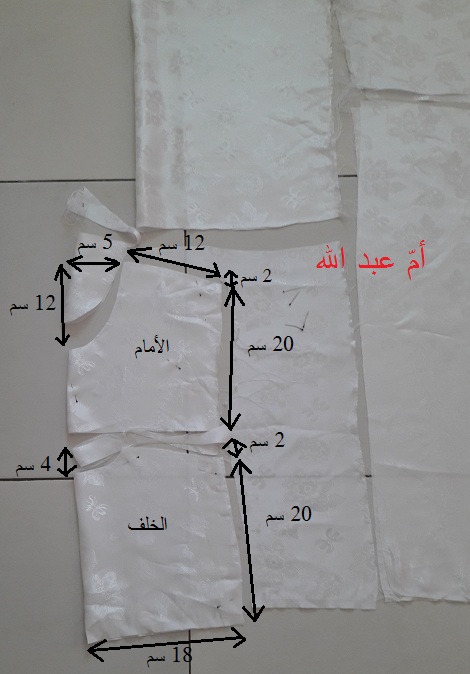 5 سم
12 سم
أمّ عبد الله
2 سم
12 سم
20 سم
الأمام
2 سم
4 سم
20 سم
الخلف
18 سم